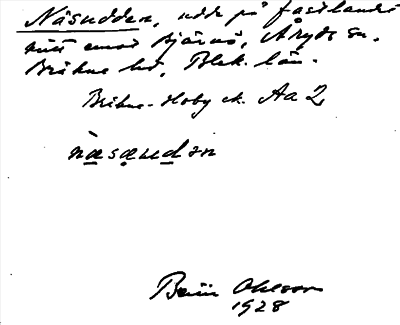 Näsudden, udde på fastlandet
mitt emot Björnö, Åryds sn.
Bräkne hd, Blek. län.
Bräkne-Hoby ek. Aa 2
näsạudən
Ohlsson
1928